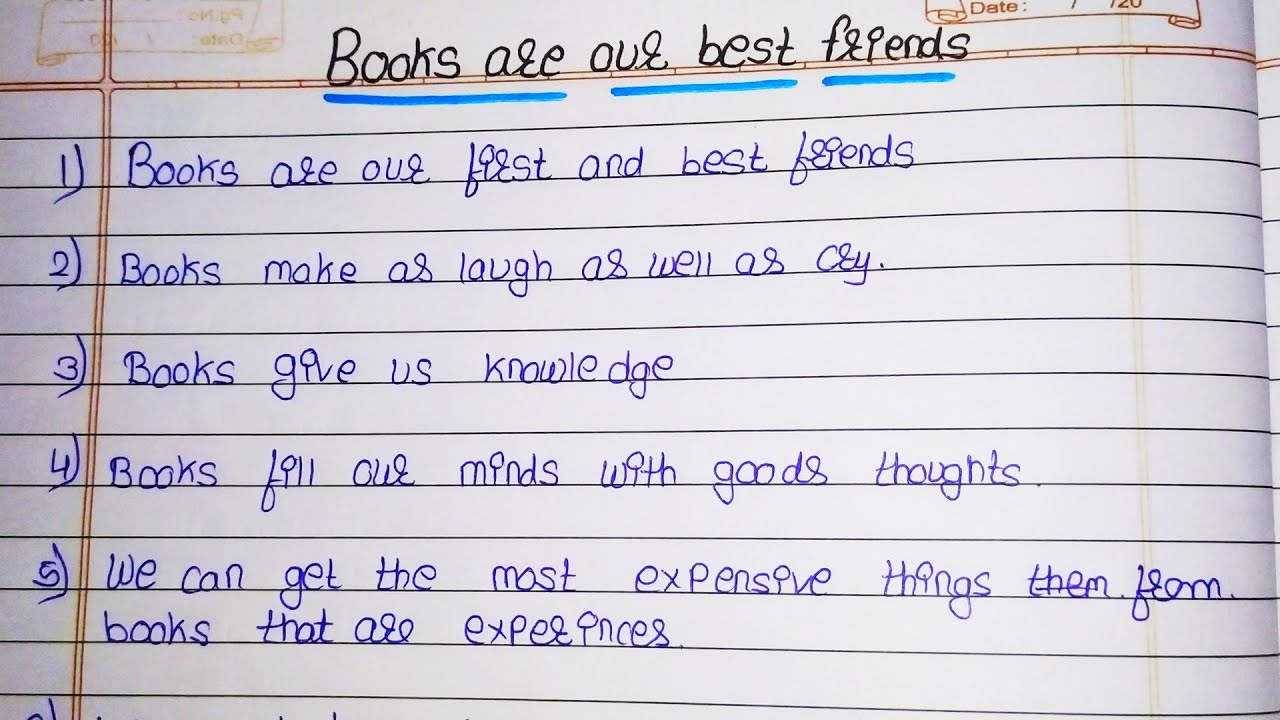 Date: / /20
Books are our best friends
1) Books are our first and best friends
2) Books make as laugh as well as cry.
3) Books give us knowledge
4) Books fill our minds with goods thoughts.
5) We can get the most expensive things them from.
books that are experinces.